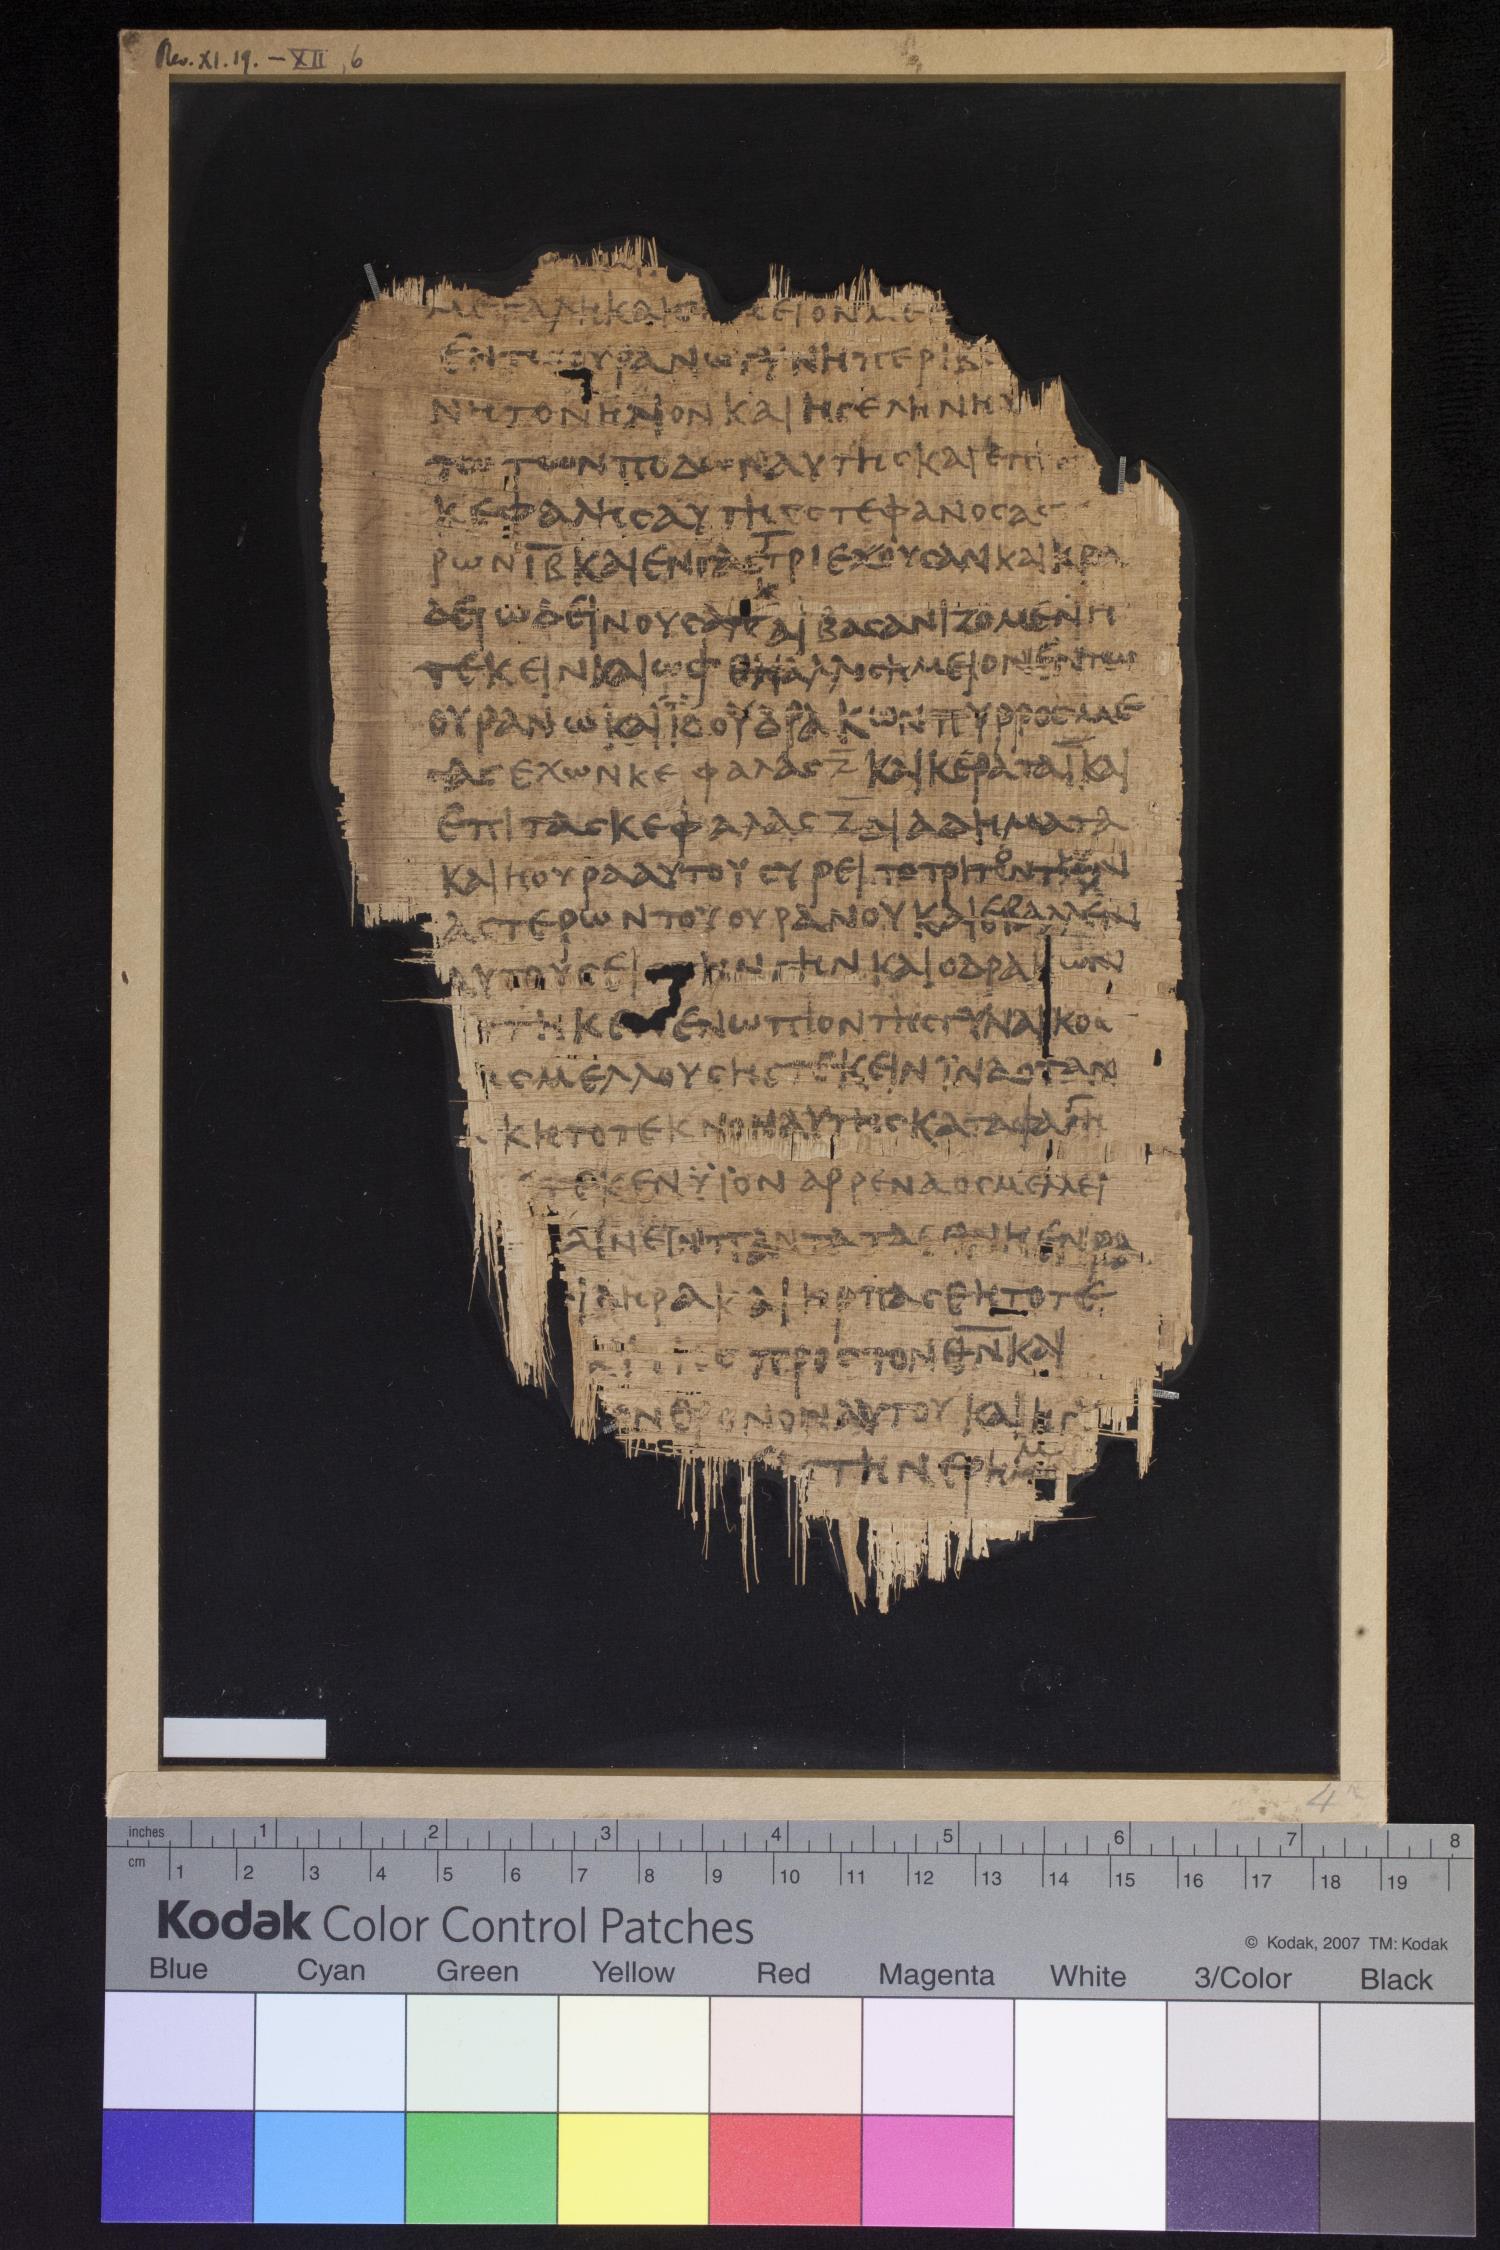 Rev. XI. 19. – XII, 6
ΜΕΓΑΛΗ ΚΑΙ
ΕΝ ΤΩ ΟΥΡΑΝΩ ΓΥΝΗ
ΝΗ ΤΟΝ ΗΛΙΟΝ ΚΑΙ Η ΣΕΛΗΝΗ Υ
ΤΩ ΤΩΝ ΠΟΔΩΝ ΑΥΤΗΣ ΚΑΙ ΕΠΙ
ΚΕΦΑΛΗΣ ΑΥΤΗΣ ΣΤΕΦΑΝΟΣ ΑΣ
ΡΩΝ ΙΒ ΚΑΙ ΕΝ ΓΑΣΤΡΙ ΕΧΟΥΣΑΝ ΚΑΙ ΚΡΑ
ΔΕΙ ΩΔΕΙΝΟΥΣΑ ΚΑΙ ΒΑΣΑΝΙΖΟΜΕΝΗ
ΤΕΚΕΙΝ ΚΑΙ ΩΦΘΗ ΑΛΛΟ ΣΗΜΕΙΟΝ ΕΝ ΤΩ
ΟΥΡΑΝΩ ΚΑΙ ΙΔΟΥ ΔΡΑΚΩΝ ΠΥΡΡΟΣ ΜΕ
ΓΑΣ ΕΧΩΝ ΚΕΦΑΛΑΣ Ζ ΚΑΙ ΚΕΡΑΤΑ Ι ΚΑΙ
ΕΠΙ ΤΑΣ ΚΕΦΑΛΑΣ Ζ ΔΙΑΔΗΜΑΤΑ
ΚΑΙ Η ΟΥΡΑ ΑΥΤΟΥ ΣΥΡΕΙ ΤΟ ΤΡΙΤΟΝ ΤΩΝ
ΑΣΤΕΡΩΝ ΤΟΥ ΟΥΡΑΝΟΥ ΚΑΙ ΕΒΑΛΕΝ
ΑΥΤΟΥΣ ΕΙ ΗΝ ΓΗΝ ΚΑΙ Ο ΔΡΑΚΩΝ
ΤΗΚΕ ΕΝΩΠΙΟΝ ΤΗΣ ΓΥΝΑΙΚΟΣ
ΗΣ ΜΕΛΛΟΥΣΗΣ ΤΕΚΕΙΝ ΙΝΑ ΟΤΑΝ
ΚΗ ΤΟ ΤΕΚΝΟΝ ΑΥΤΗΣ ΚΑΤΑΦΑΓΗ
ΤΕΚΕΝ ΥΙΟΝ ΑΡΡΕΝΑ ΟΣ ΜΕΛΛΕΙ
ΑΙΝΕΙΝ ΠΑΝΤΑ ΤΑ ΕΘΝΗ ΕΝ ΡΑ
ΙΔΗΡΑ ΚΑΙ ΗΡΠΑΣΘΗ ΤΟ ΤΕ
ΠΡΟΣ ΤΟΝ ΘΝ ΚΑΙ
ΟΝ ΘΡΟΝΟΝ ΑΥΤΟΥ ΚΑΙ Η Γ
ΤΗΝ ΕΡΗΜ
4
inches 1 2 3 4 5 6 7 8
cm 1 2 3 4 5 6 7 8 9 10 11 12 13 14 15 16 17 18 19
Kodak Color Control Patches
© Kodak, 2007 TM: Kodak
Blue Cyan Green Yellow Red Magenta White 3/Color Black